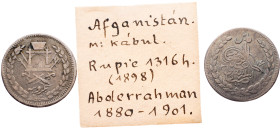 Afganistán.
m: kábul.
Rupie 1316h.
(1898)
Abderrahman
1880-1901.